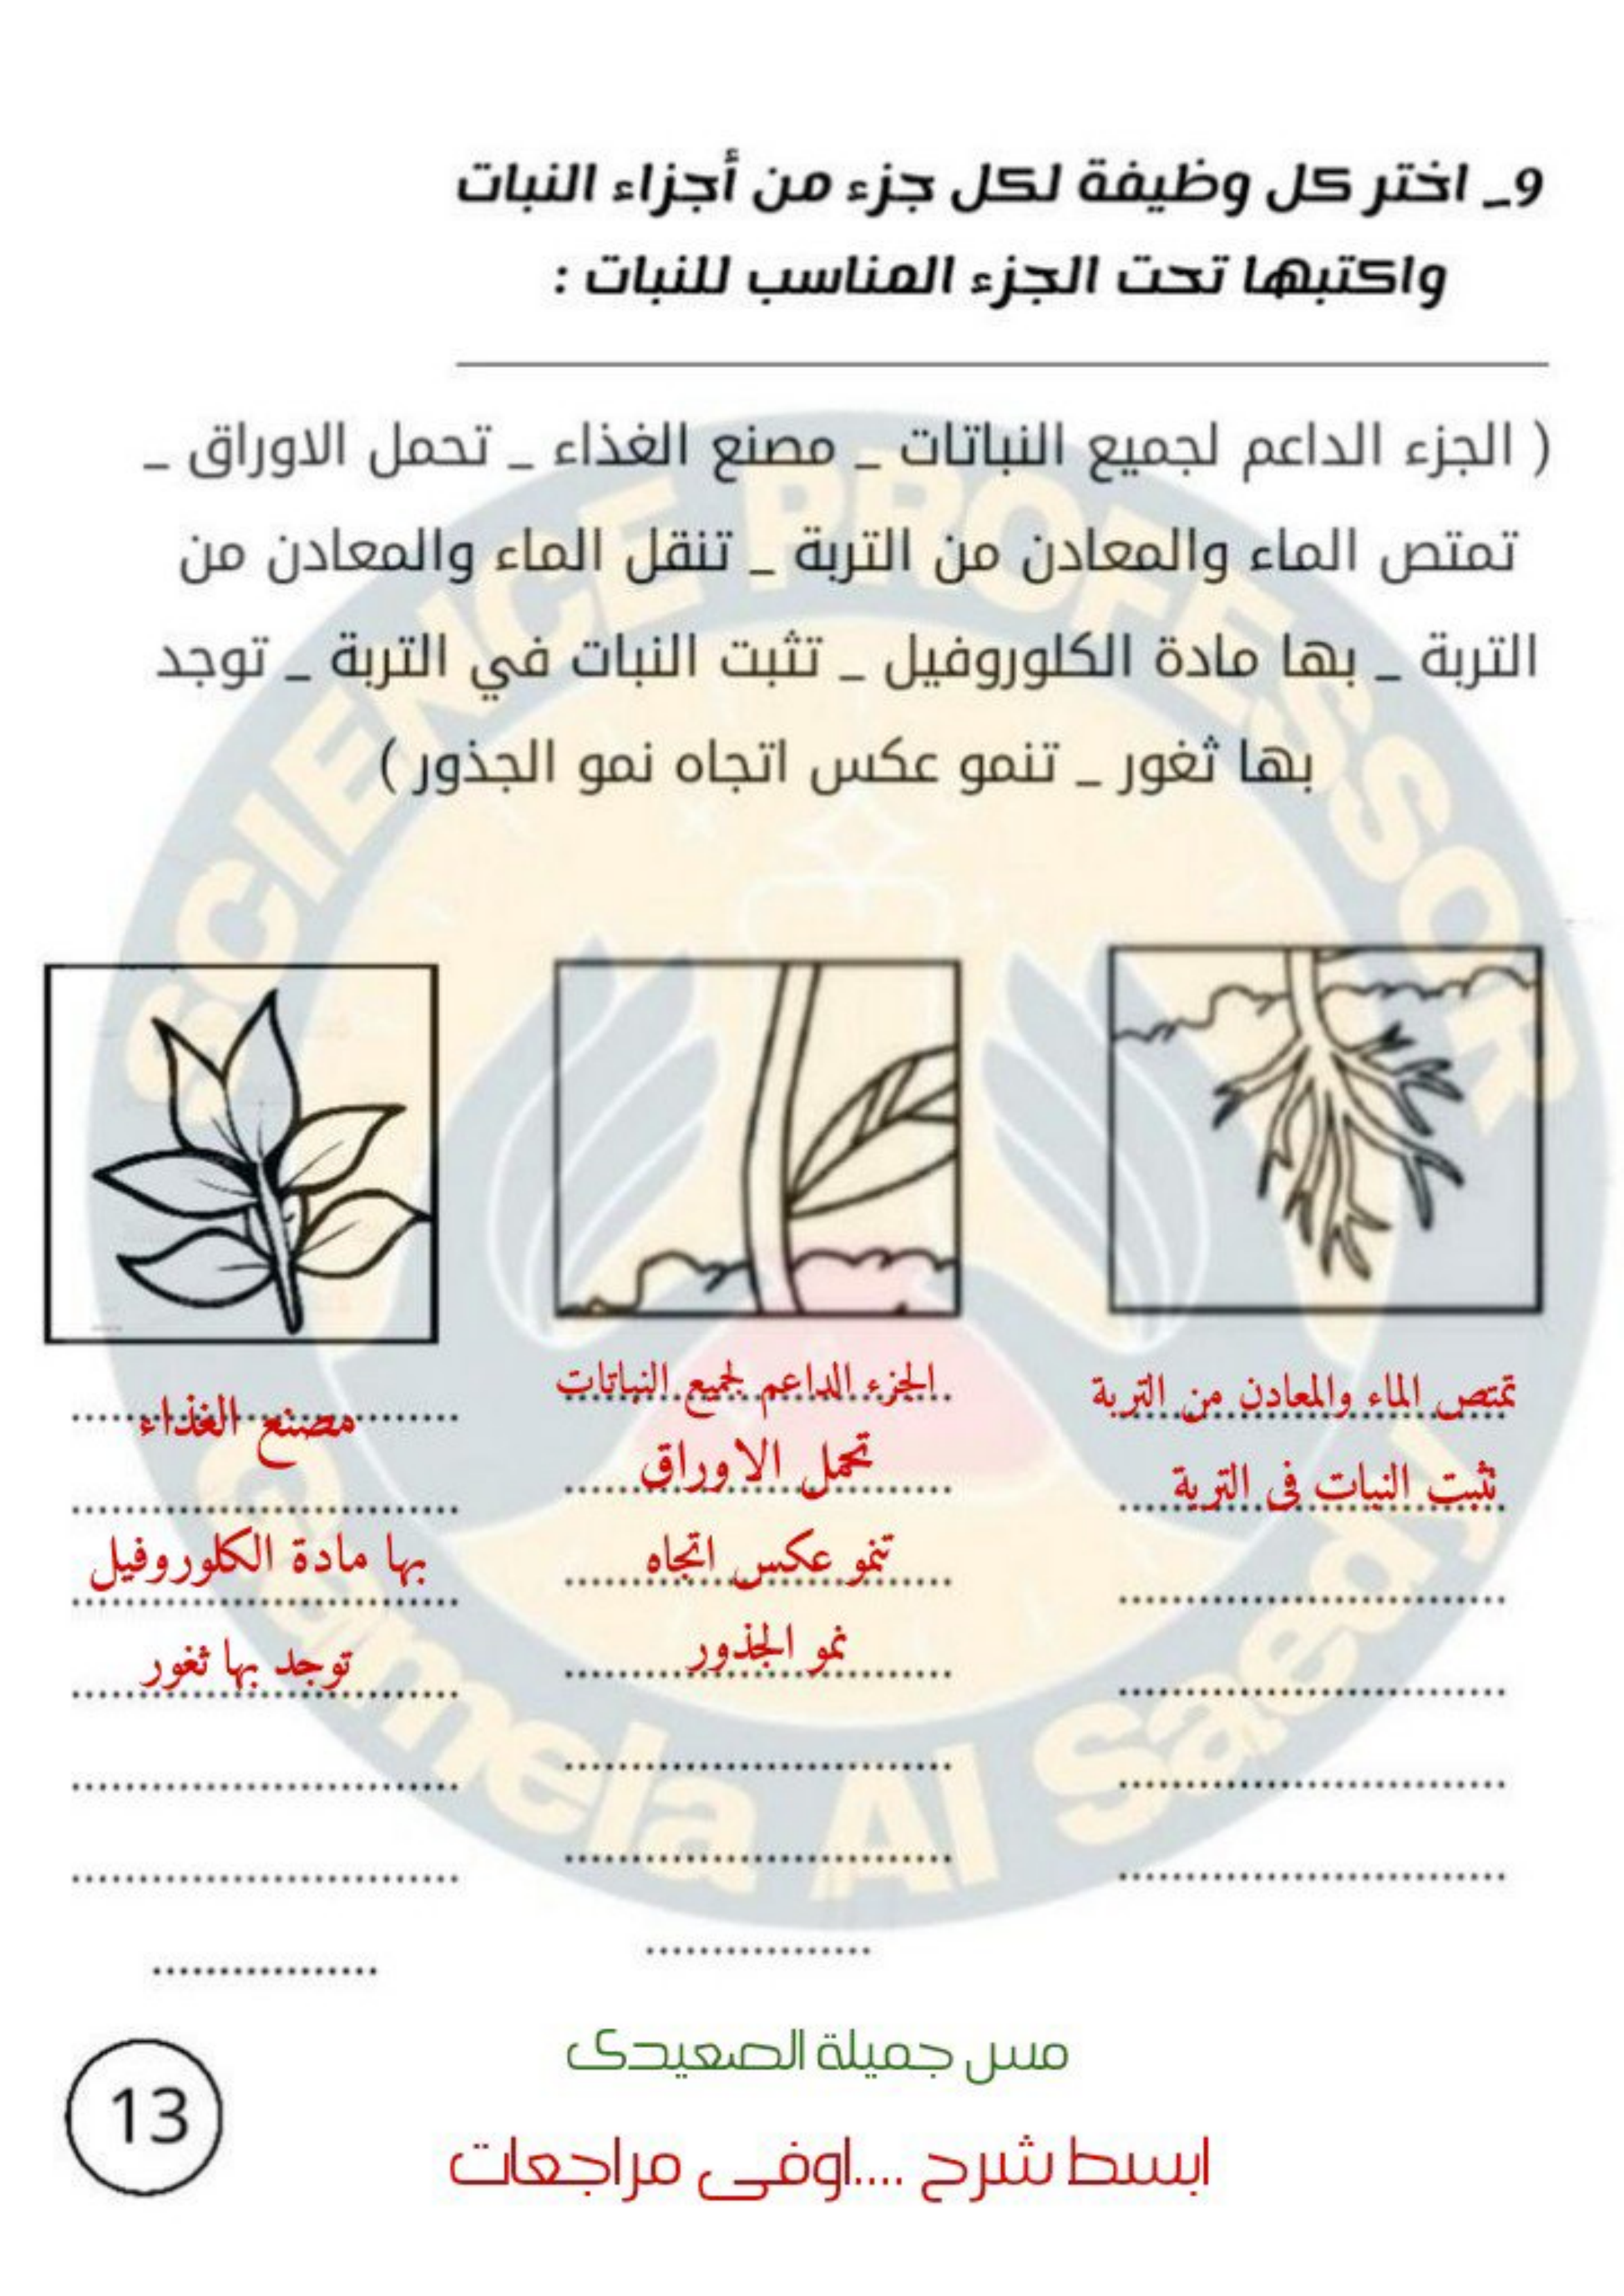 9_ اختر كل وظيفة لكل جزء من أجزاء النبات
واكتبها تحت الجزء المناسب للنبات :
( الجزء الداعم لجميع النباتات _ مصنع الغذاء _ تحمل الاوراق _
تمتص الماء والمعادن من التربة _ تنقل الماء والمعادن من
التربة _ بها مادة الكلوروفيل _ تثبت النبات في التربة _ توجد
بها ثغور _ تنمو عكس اتجاه نمو الجذور )
تمتص الماء والمعادن من التربة
تثبت النبات فى التربة
الجزء الداعم لجميع النباتات
تحمل الاوراق
تنمو عكس اتجاه
نمو الجذور
مصنع الغذاء
بها مادة الكلوروفيل
توجد بها ثغور
SCIENCE PROFESSOR
Gamela Al Saedy
مس جميلة الصعيدى
ابسط شرح ....اوفى مراجعات
13